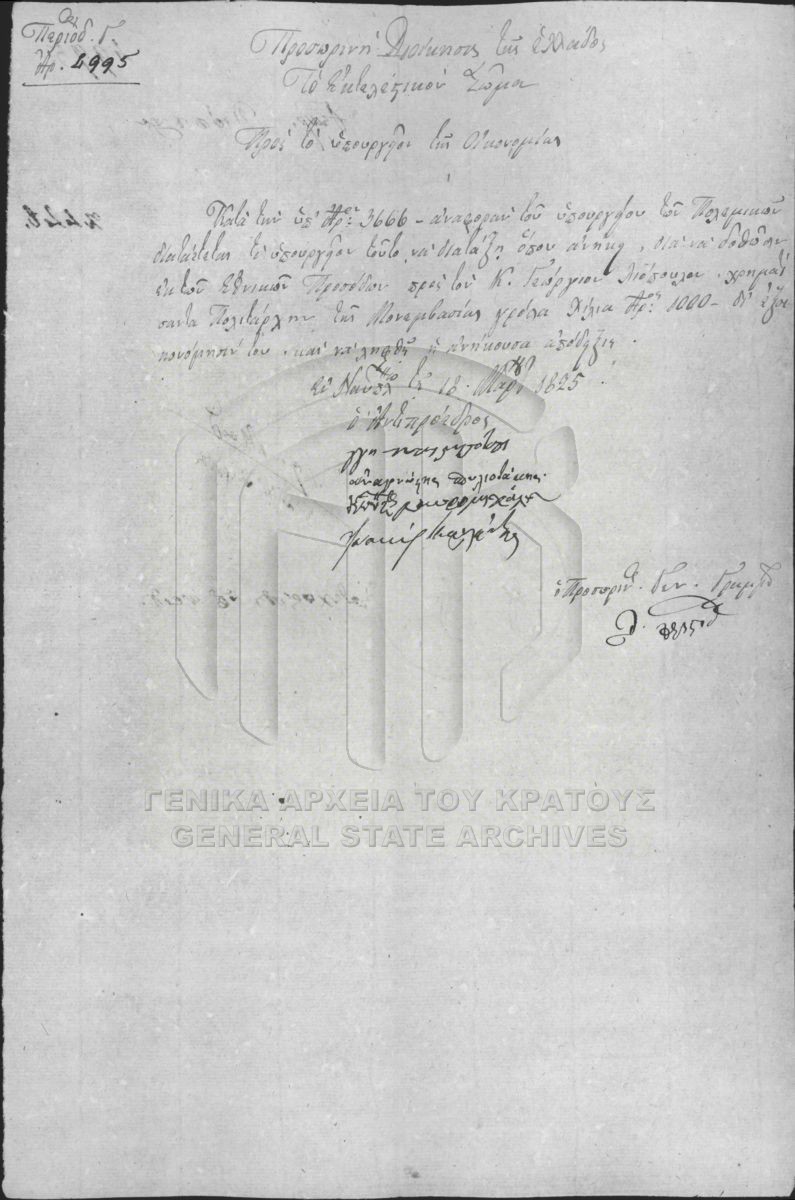 Περιόδ. Γ.
Ἀρ. 4995
Προσωρινὴ Διοίκησις τῆς Ἑλλάδος
Τὸ Ἐκτελεστικὸν Σῶμα
Πρὸς τὸ ὑπουργεῖον τῆς Οἰκονομίας
Κατὰ τὴν ὑπ' Ἀρ: 3666 – ἀναφορὰν τοῦ ὑπουργείου τῶν Πολεμικῶν
διατάττεται τὸ ὑπουργεῖον τοῦτο, νὰ διατάξῃ ὅπου ἀνήκῃ, διὰ νὰ δοθῶσιν
ἐκ τῶν Ἐθνικῶν Προσόδων πρὸς τὸν Κ. Γεώργιον χρηματί
σαντα Πολιτάρχην τῆς Μονεμβασίας γρόσια χίλια Ἀρ: 1000 – δι' ἐξοι
κονόμησίν του, καὶ νὰ ληφθῇ ἡ ἀνήκουσα ἀπόδειξις.
Ἐν Ναυπλ τῇ 18. Μαρ 1825
ὁ Ἀντιπρόεδρος
ἀναγνώστης σπηλιοτάκης
ὁ Προσωριν. Γεν. Γραμματ
ΓΕΝΙΚΑ ΑΡΧΕΙΑ ΤΟΥ ΚΡΑΤΟΥΣ
GENERAL STATE ARCHIVES